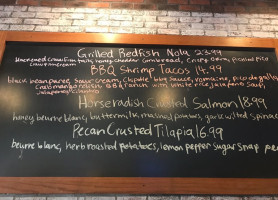 Grilled Redfish Nola 23.99
Blackened crawfish tails, honey cheddar cornbread, crispy okra, pickled pico
cajun cream
BBQ Shrimp Tacos 14.99
black bean puree, sour cream, chipotle bbq sauce, romaine, pico de gallo,
mango relish BBQ ranch with white rice, jalapeño
Horseradish Crusted Salmon 18.99
honey beurre blanc, buttermilk mashed potatoes, garlic wilted spinac
Pecan Crusted Tilapia 16.99
beurre blanc, herb roasted potatoes, lemon pepper sugar snap pe